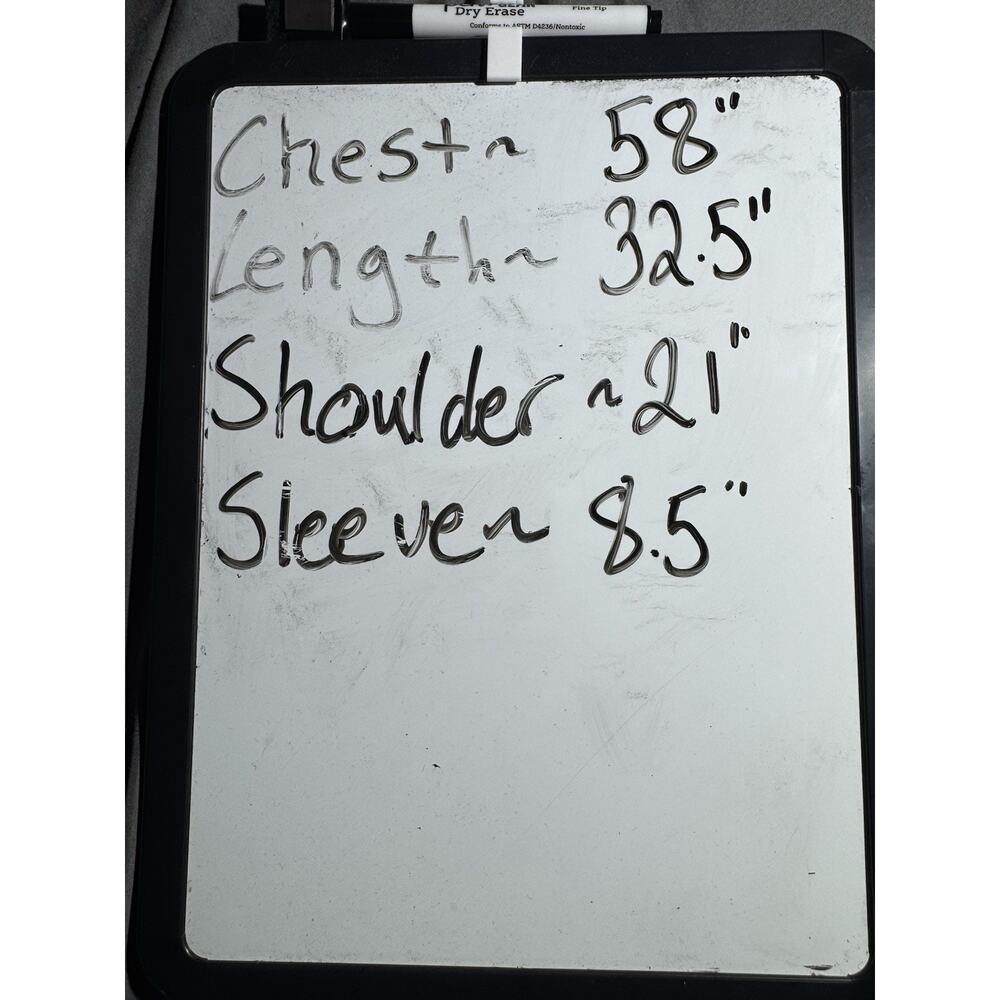 Dry Erase
Fine Tip
Conforms to ASTM D4236/Nontoxic
Chest~ 58"
Length~ 32.5"
Shoulder ~21"
Sleeve~ 8.5"